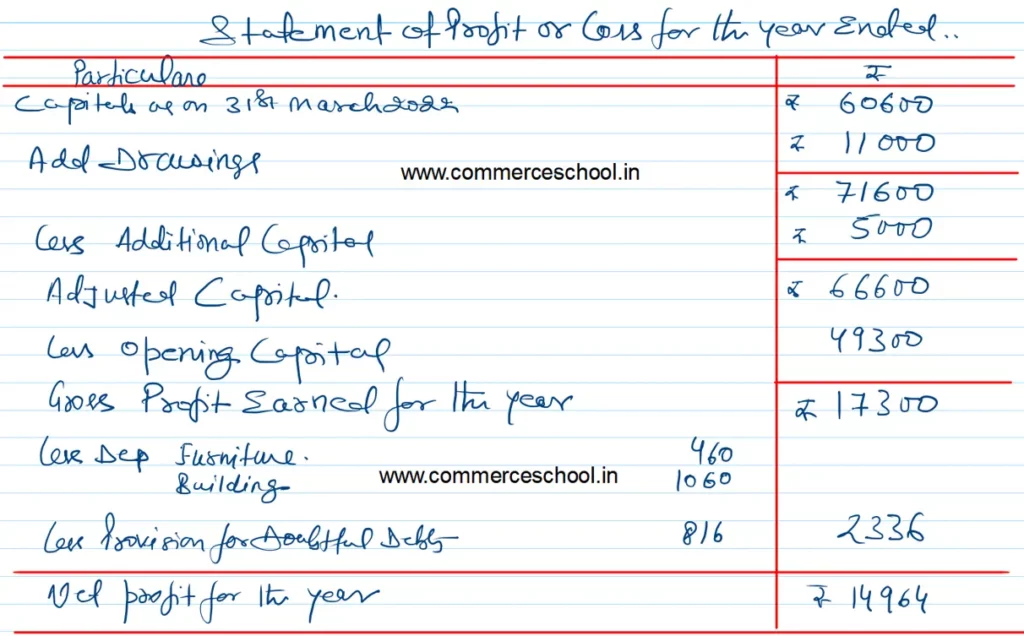 Statement of Profit or Loss for the year Ended..
Particulars ₹
Capital as on 31st March 2022 ₹ 60600
Add Drawings ₹ 11000
www.commerceschool.in
₹ 71600
Less Additional Capital ₹ 5000
Adjusted Capital. ₹ 66600
Less Opening Capital 49300
Gross Profit Earned for the year ₹ 17300
Less Dep Furniture. 460
Building 1060
www.commerceschool.in
Less Provision for Doubtful Debts 816 2336
Net profit for the year ₹ 14964